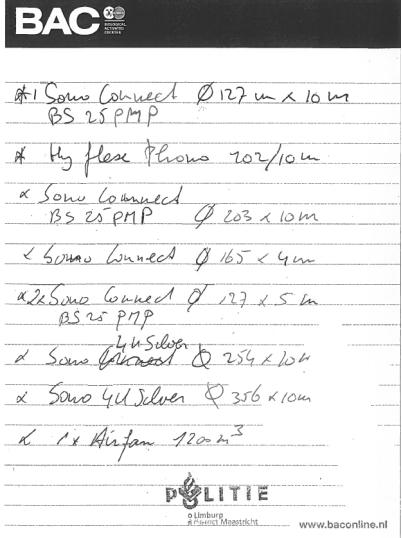 BAC
BIOLOGICAL
ACTIVATED
* 1 Sono Connect Ø 127 m x 10 m
BS 25 PMP
* Hy flexe Phono 202/10m
x Sono Connect
BS 25 PMP Ø 203 x 10m
x Sono Connect Ø 165 x 4m
x 2x Sono Connect Ø 127 x 5 m
BS 25 PMP
4U Silver
x Sono Connect Ø 254 x 10m
x Sono 4U Silver Ø 356 x 10m
x 1x Airfan 1200 m³
POLITIE
Limburg
District Maastricht
www.baconline.nl